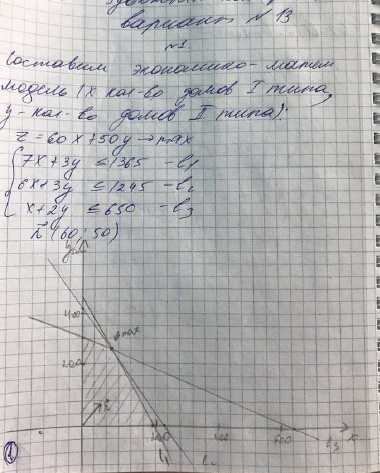 вариант №13
№1.
Составим экономико-матем.
модель (x кол-во домов I типа,
y - кол-во домов II типа):
z = 60x + 50y → max
7x + 3y ≤ 1365 - l₁
6x + 3y ≤ 1245 - l₂
x + 2y ≤ 650 - l₃
n̄ (60; 50)
y
400
max
200
n̄
200 400 600 x
l₁ l₂ l₃
1